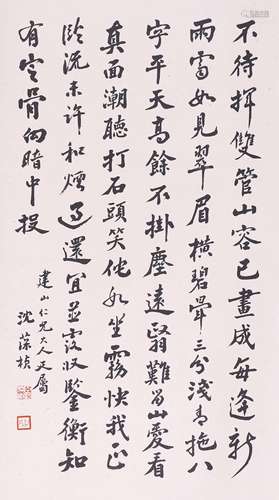 不待揮雙管山容已畫成每逢新
雨霽如見翠眉橫碧暈三分淺青拖八
字平天高餘不掛塵遠翳難留山愛看
真面潮聽打石頭笑他如坐霧快我正
臨流未許和煙還宜並霞收鑒衡知
有定肯向暗中投
建山仁兄大人正屬
沈葆楨